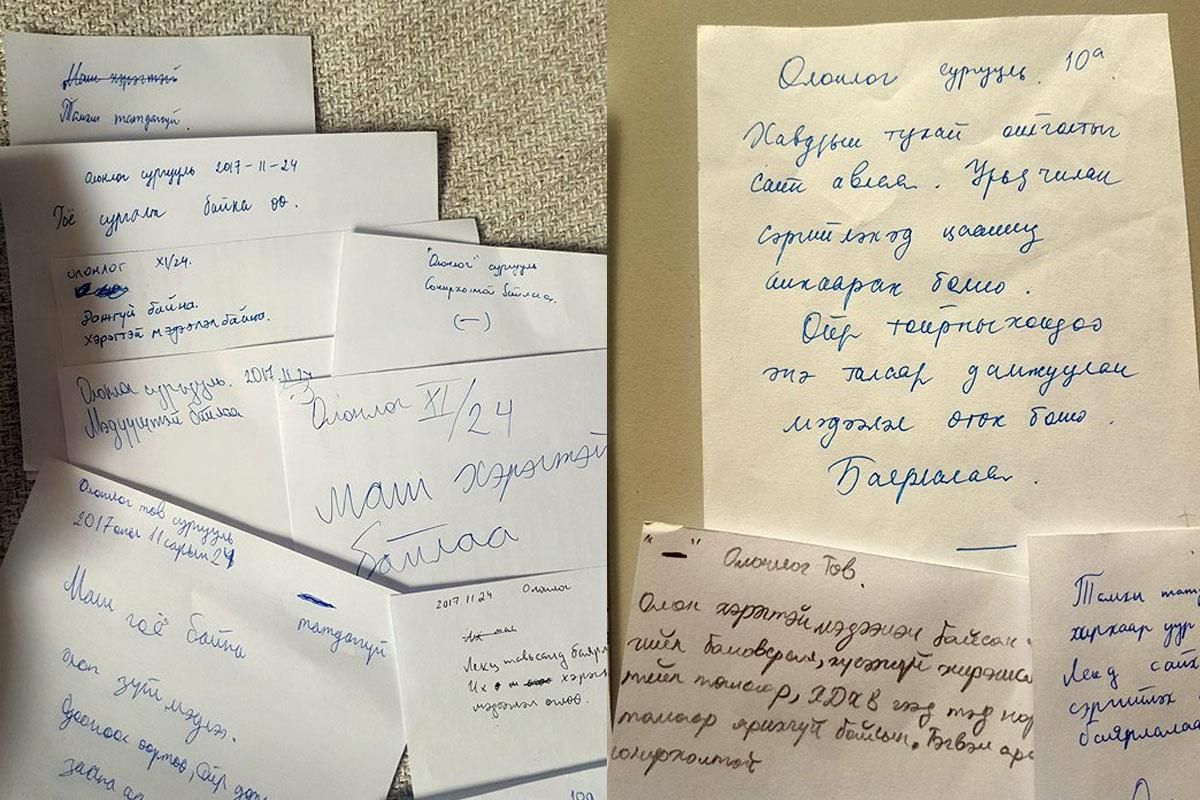 Маш хэрэгтэй
Тамхи татдаггүй
Олонлог сургууль 2017-11-24
Гоё сургалт байна оо.
Олонлог XI/24.
Зохгүй байна.
Хэрэгтэй мэдээлэл байна.
"Олонлог" сургууль
Сонирхолтой байлаа.
(—)
Олонлог сургууль. 2017.11.24
Мэдүүштэй байлаа
Олонлог XI/24
маш хэрэгтэй
байлаа
Олонлог төв сургууль
2017 оны 11 сарын 24
татдаггүй
Маш гоё байна
олон зүйл мэдлээ.
Одооноос өөртөө, ойр
2017.11.24 Олонлог
Лекц тавьсанд баярл
Их хэрэг
мэдээлэл олоо.
10а
Олонлог сургууль. 10а
Хавдрын тухай ойлголтыг
сайн авлаа. Урьдчилан
сэргийлэхэд цаашид
анхаарах болно.
Ойр тойрныхондоо
энэ талаар дамжуулан
мэдээлэл өгөх болно.
Баярлалаа.
"—" Олонлог Төв.
Олон хэрэгтэй мэдээлэл байсан
гийн боловсрол, хүсээгүй жирэмслэ
талаар, ХДХВ гээд
талаар яриагүй байсын. Тэгвэл
сонирхолтой
Тамхи тат
хирхаар уур
Лекц сайх
сэргийлэх
баярлалаа